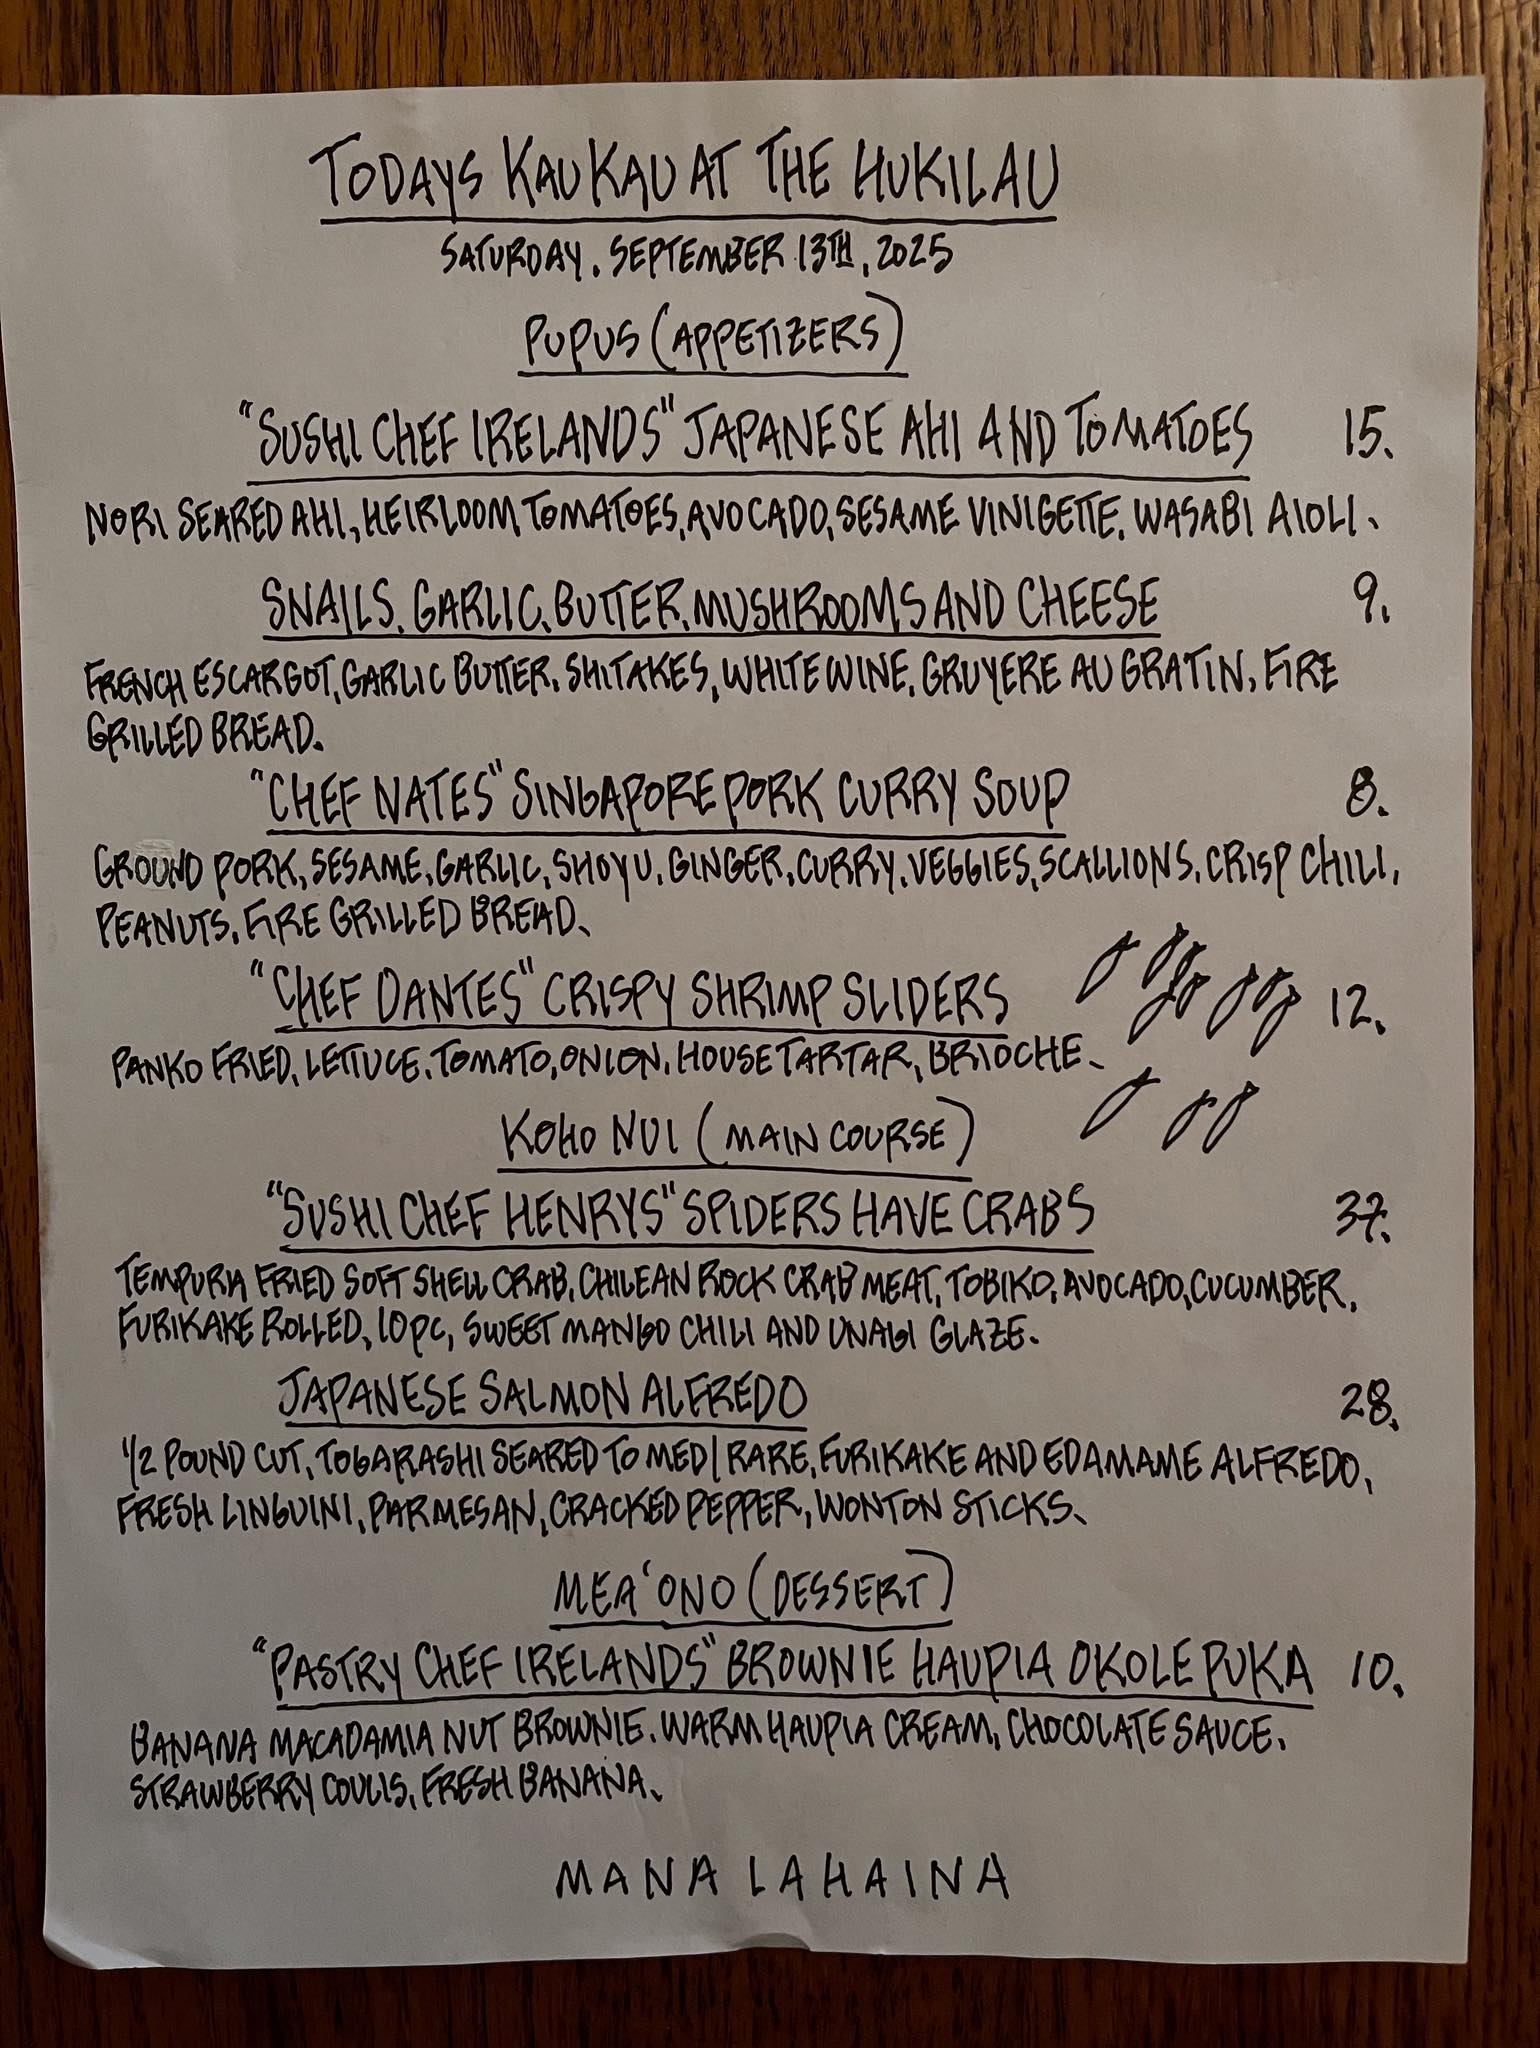 TODAYS KAUKAU AT THE HUKILAU
SATURDAY. SEPTEMBER 13TH, 2025
PUPUS (APPETIZERS)
"SUSHI CHEF IRELANDS" JAPANESE AHI AND TOMATOES 15.
NORI SEARED AHI, HEIRLOOM TOMATOES, AVOCADO, SESAME VINIGETTE. WASABI AIOLI.
SNAILS, GARLIC, BUTTER, MUSHROOMS AND CHEESE 9.
FRENCH ESCARGOT, GARLIC BUTTER, SHITAKES, WHITE WINE, GRUYERE AU GRATIN, FIRE
GRILLED BREAD.
"CHEF NATES" SINGAPORE PORK CURRY SOUP 8.
GROUND PORK, SESAME, GARLIC, SHOYU, GINGER, CURRY, VEGGIES, SCALLIONS, CRISP CHILI,
PEANUTS, FIRE GRILLED BREAD.
"CHEF DANTES" CRISPY SHRIMP SLIDERS 12.
PANKO FRIED, LETTUCE, TOMATO, ONION, HOUSE TARTAR, BRIOCHE.
KOHO NUI (MAIN COURSE)
"SUSHI CHEF HENRYS" SPIDERS HAVE CRABS 37.
TEMPURA FRIED SOFT SHELL CRAB, CHILEAN ROCK CRAB MEAT, TOBIKO, AVOCADO, CUCUMBER,
FURIKAKE ROLLED, 10PC, SWEET MANGO CHILI AND UNAGI GLAZE.
JAPANESE SALMON ALFREDO 28.
1/2 POUND CUT, TOGARASHI SEARED TO MED/RARE, FURIKAKE AND EDAMAME ALFREDO,
FRESH LINGUINI, PARMESAN, CRACKED PEPPER, WONTON STICKS.
MEA'ONO (DESSERT)
"PASTRY CHEF IRELANDS" BROWNIE HAUPIA OKOLE PUKA 10.
BANANA MACADAMIA NUT BROWNIE. WARM HAUPIA CREAM, CHOCOLATE SAUCE,
STRAWBERRY COULIS, FRESH BANANA.
MANA LAHAINA